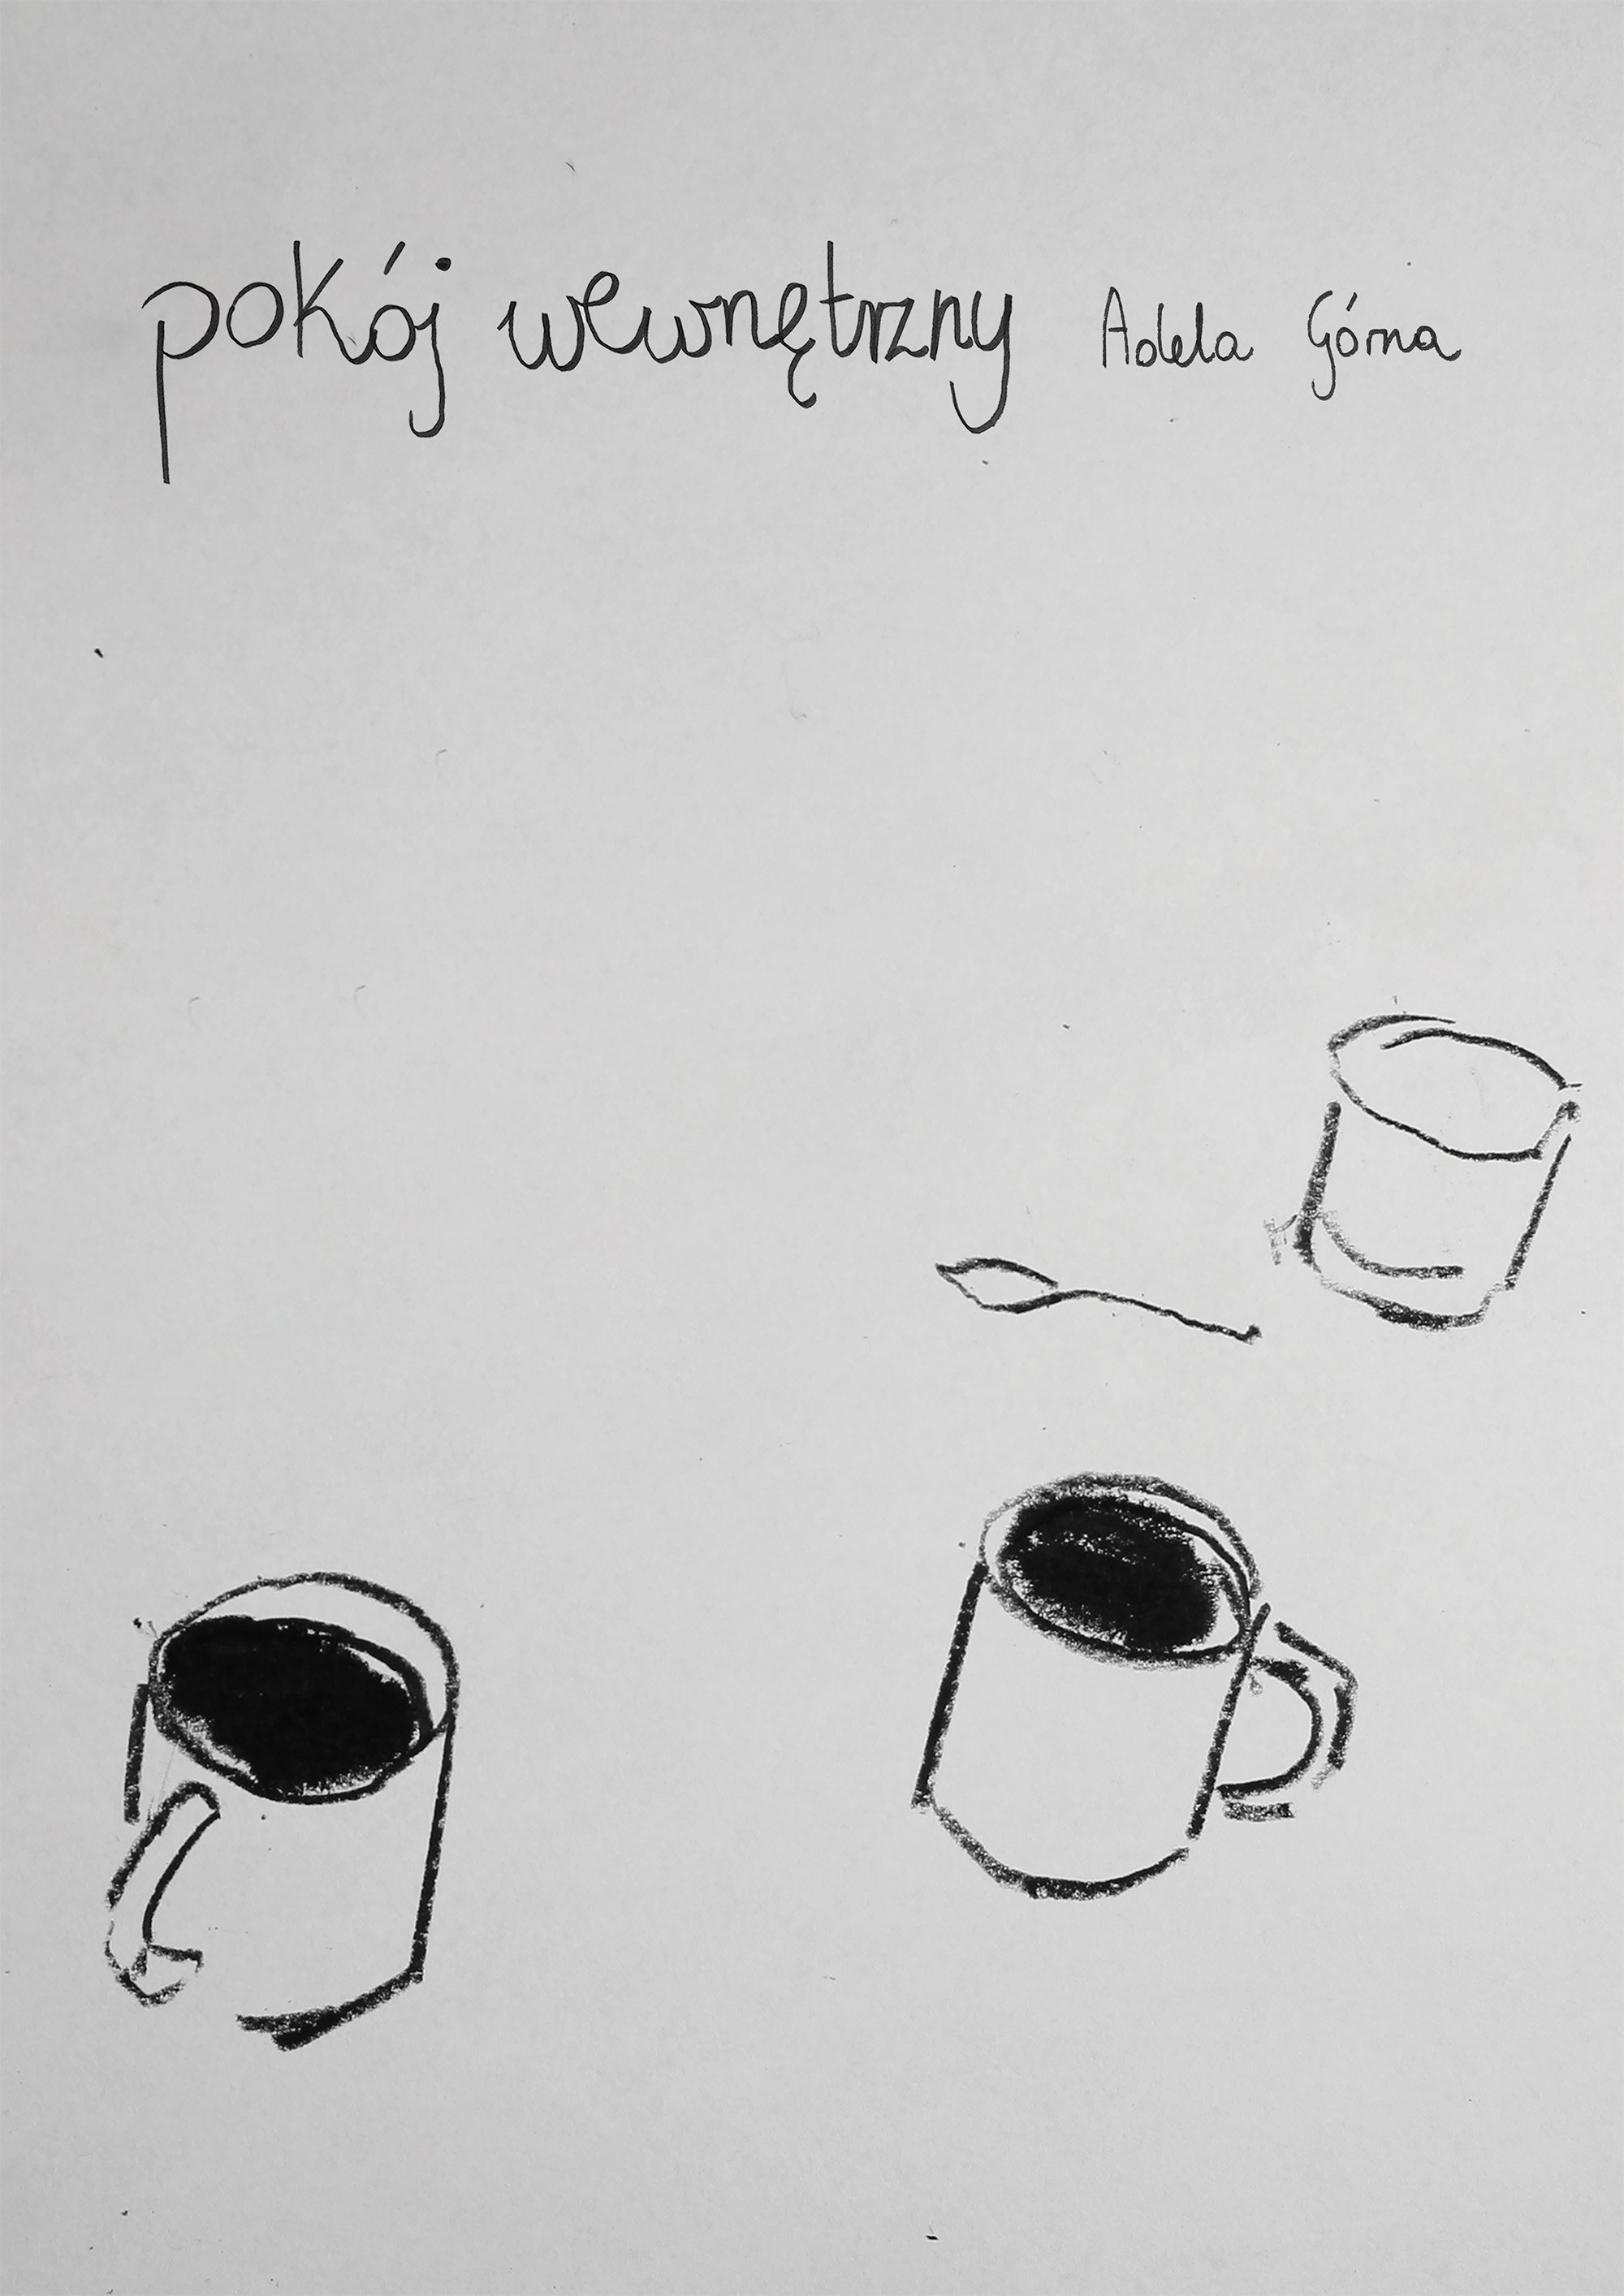 pokój wewnętrzny Adela Górna